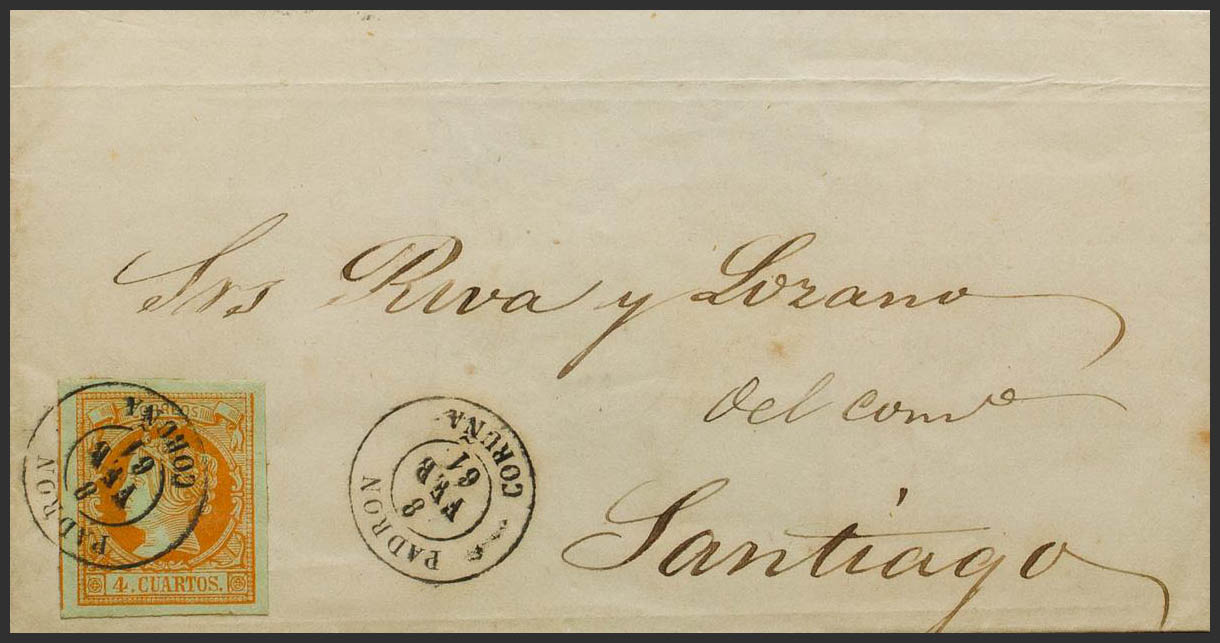 Srs Riva y Lozano
del comº
Santiago
PADRON
8
FEB
61
CORUÑA
PADRON
8
FEB
61
CORUÑA
4. CUARTOS.